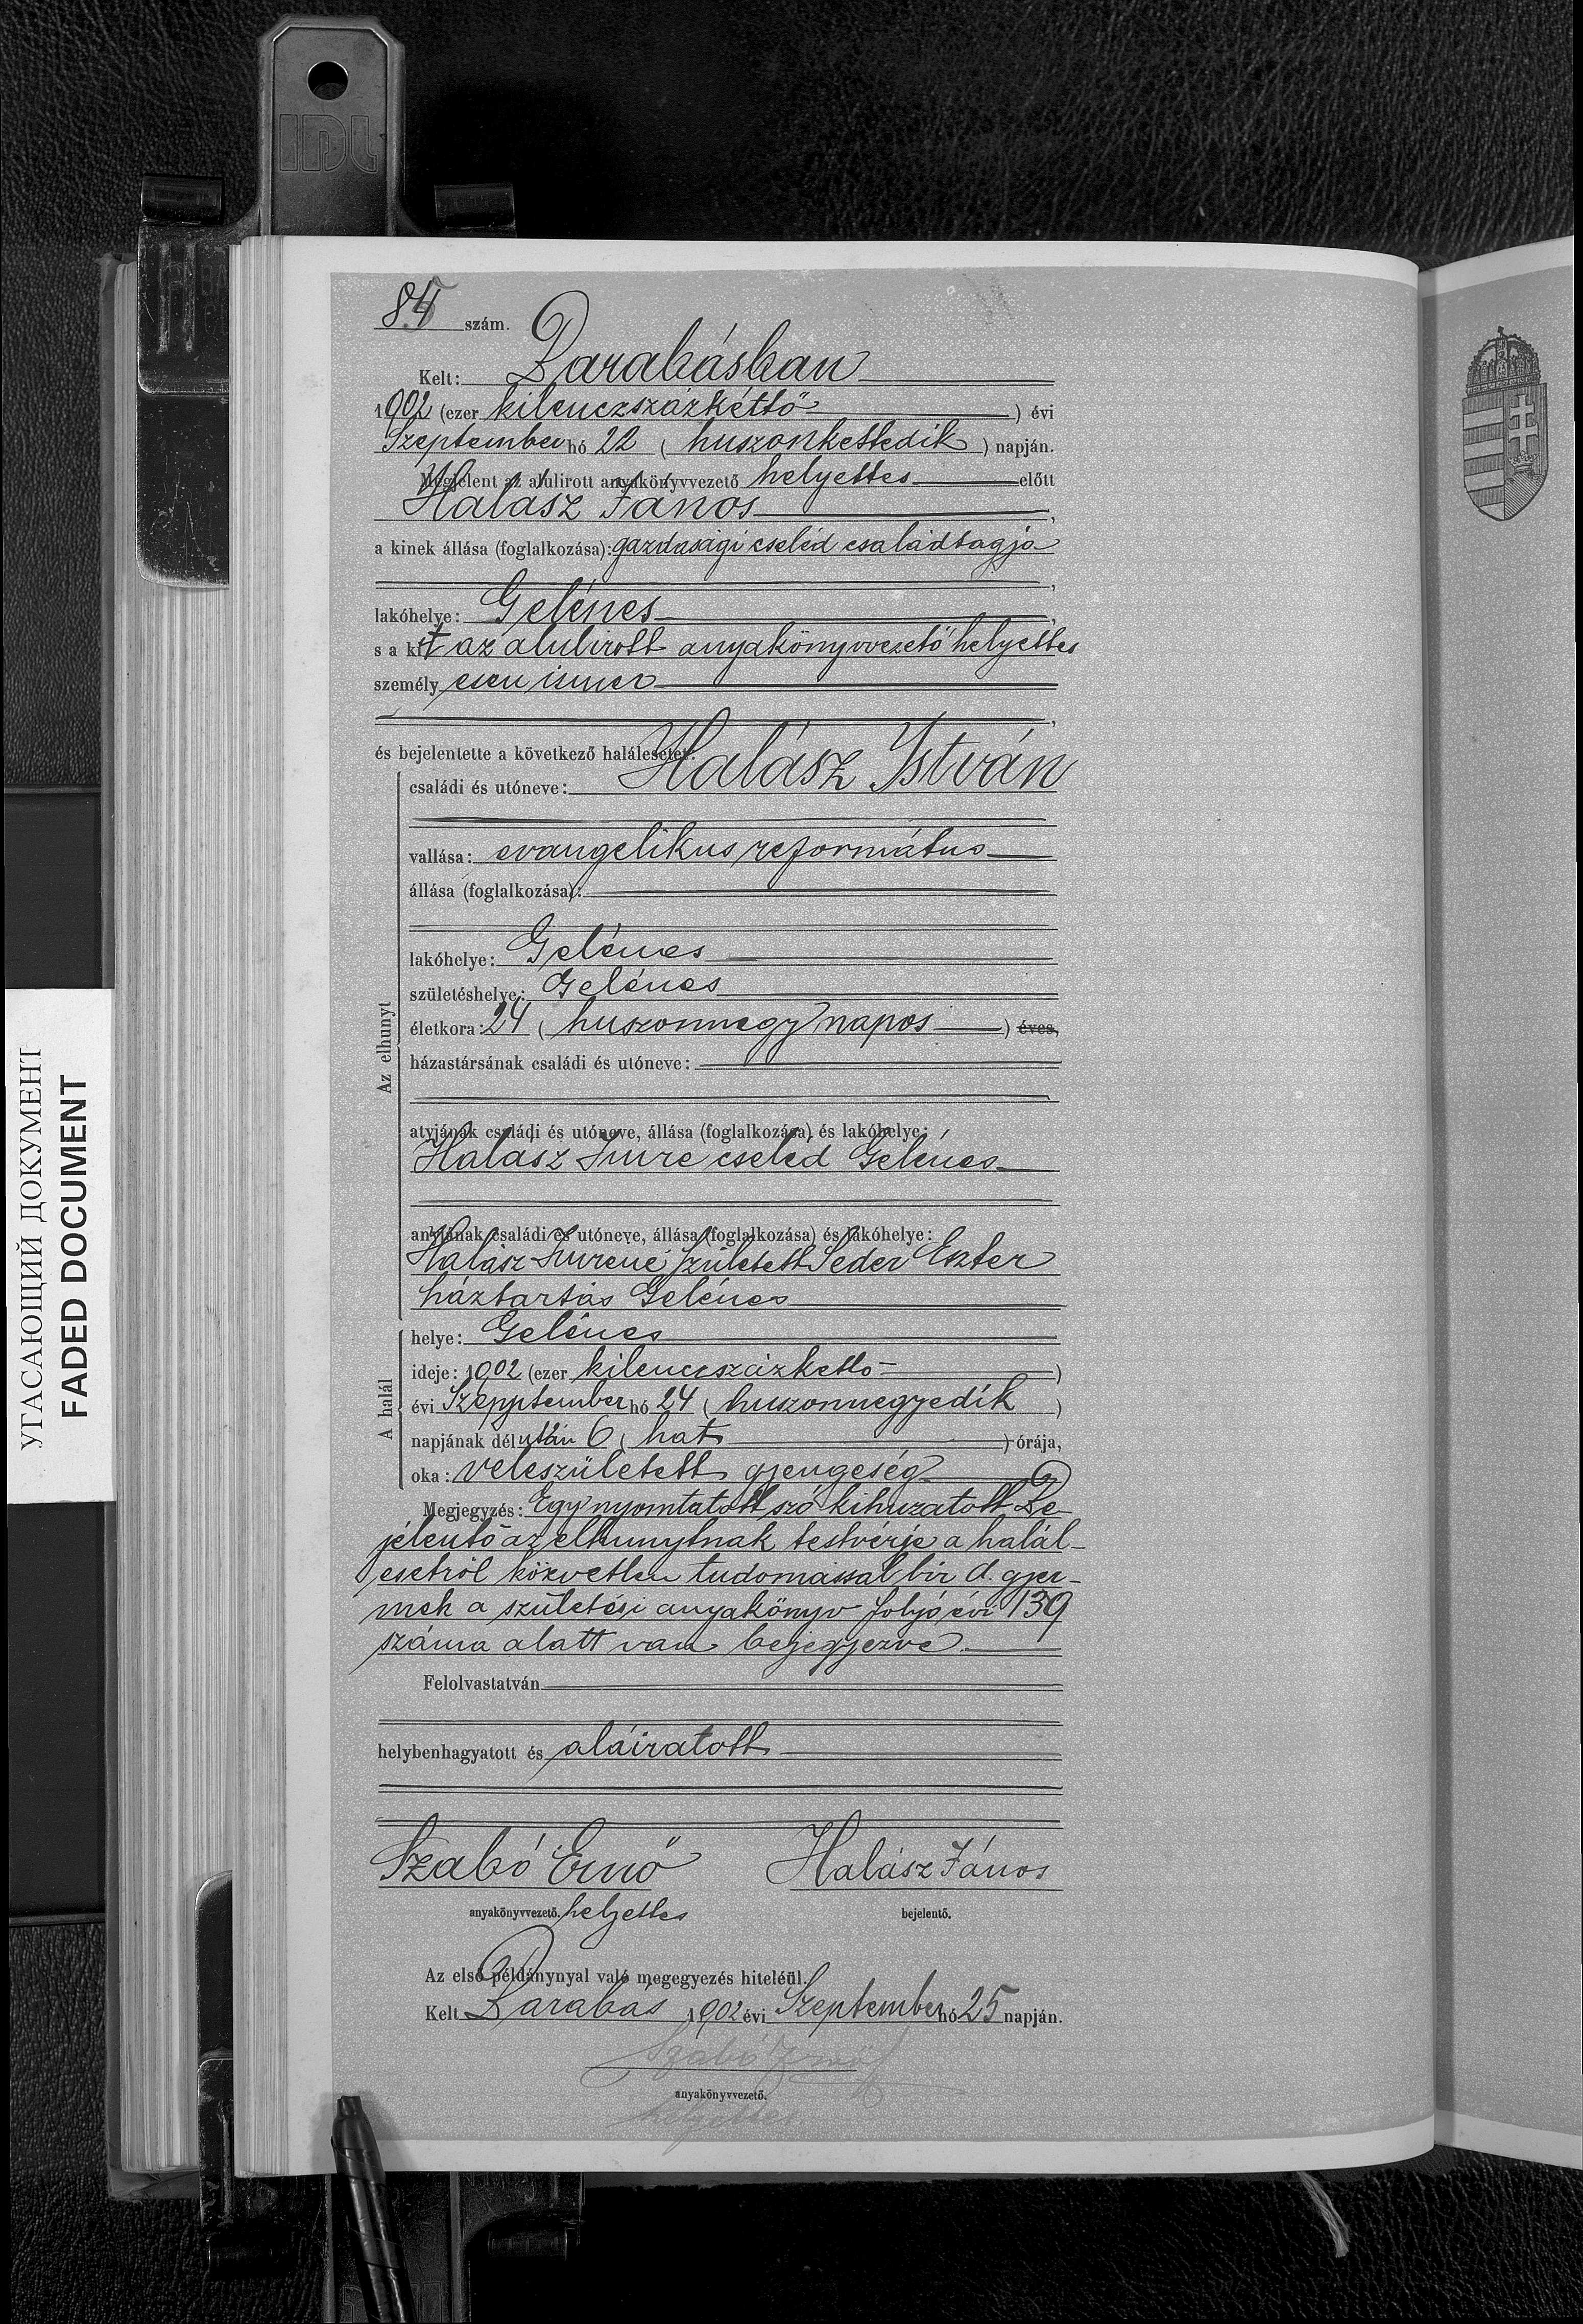 IDL
УГАСАЮЩИЙ ДОКУМЕНТ
FADED DOCUMENT
84 szám.
Kelt: Barabásban
1902 (ezer kilenczszázkéttő) évi
Szeptember hó 22 (huszonkettedik) napján.
Megjelent az alulirott anyakönyvvezető helyettes előtt
Halász János,
a kinek állása (foglalkozása): gazdasági cseléd családtagja
,
lakóhelye: Gelénes,
s a kit az alulirott anyakönyvvezető helyettes
személyesen ismer
,
és bejelentette a következő halálesetet:
Az elhunyt
családi és utóneve: Halász István
vallása: evangelikus református
állása (foglalkozása):
lakóhelye: Gelénes
születéshelye: Gelénes
életkora: 24 (huszonnegy napos) éves,
házastársának családi és utóneve:
atyjának családi és utóneve, állása (foglalkozása) és lakóhelye:
Halász Imre cseléd Gelénes
anyjának családi és utóneve, állása (foglalkozása) és lakóhelye:
Halász Imréné született Seder Eszter
háztartás Gelénes
A halál
helye: Gelénes
ideje: 1902 (ezer kilenczszázkettő)
évi Szepptember hó 24 (huszonnegyedik)
napjának délután 6 (hat) órája,
oka: veleszületett gyengeség
Megjegyzés: Egy nyomtatott szó kihuzatott Be-
jelentő az elhunytnak testvérje a halál-
esetről közvetlen tudomással bir A. gyer-
mek a születési anyakönyv folyó évi 139
száma alatt van bejegyezve.
Felolvastatván
helybenhagyatott és aláiratott
Szabó Ernő Halász János
anyakönyvvezető. helyettes bejelentő.
Az első példánynyal való megegyezés hiteléül.
Kelt Barabás 1902 évi Szeptember hó 25 napján.
Szabó Ernő
anyakönyvvezető.
helyettes